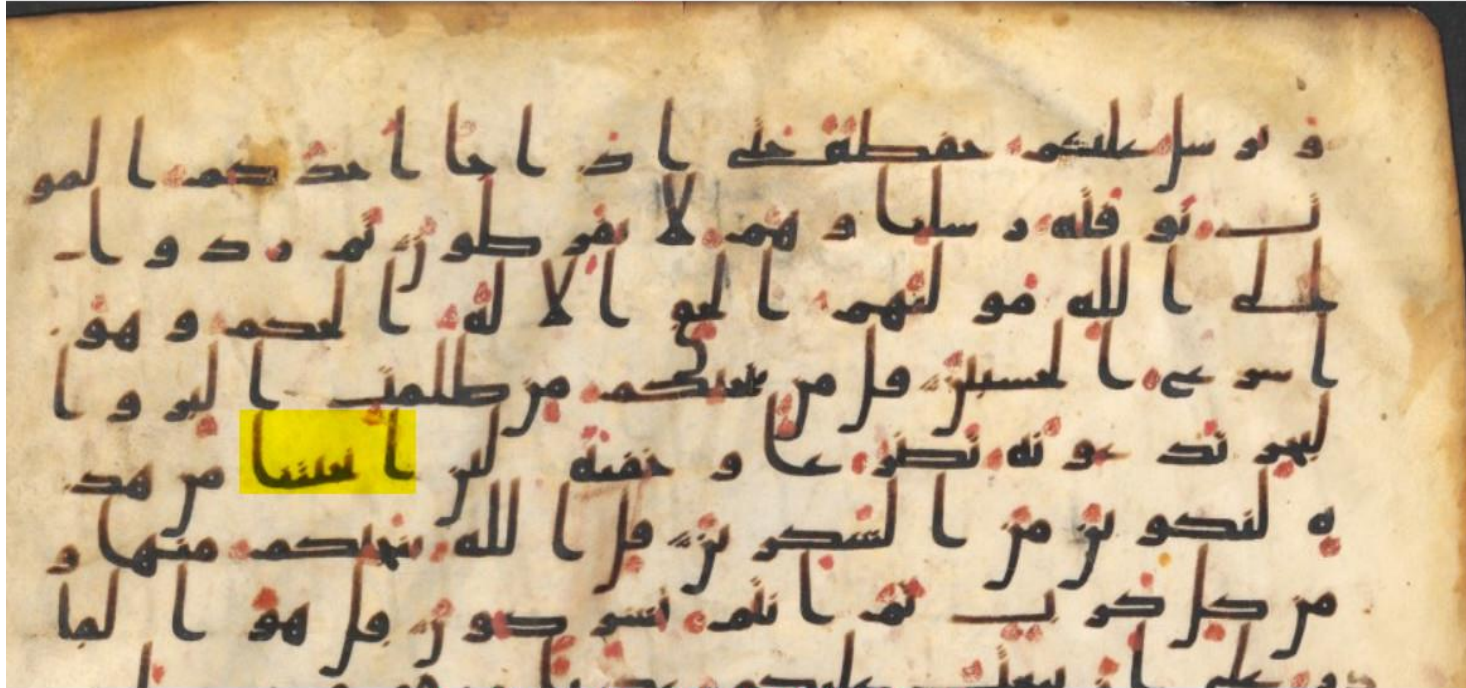 و يرسل عليكم حفظة حتى اذا جا احدكم المو
ت توفته رسلنا و هم لا يفرطون ثم ردوا
الى الله موليهم الحق الا له الحكم و هو
اسرع الحسبين قل من ينجيكم من ظلمت البر و ا
لبحر تدعونه تضرعا و خفية لئن انجيتنا من هذ
ه لنكونن من الشكرين قل الله ينجيكم منها و
من كل كرب ثم انتم تشركون قل هو القا
در على ان يبعث عليكم عذابا